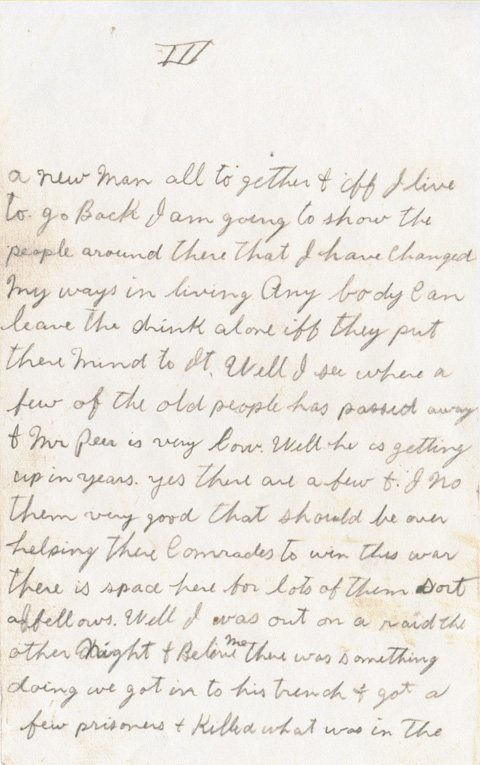 III
a new man all to gether & iff I live
to go Back I am going to show the
people around there that I have changed
My ways in living Any body Can
leave the drink alone iff they put
there mind to It. Well I see where a
few of the old people has passed away
& Mr Peer is very low. Well he is getting
up in years. yes there are a few & I no
them very good that should be over
helping there Comrades to win this war
there is spad here for lots of them sort
of fellows. Well I was out on a raid the
other Night & Believe me there was something
doing we got in to his trench & got a
few prisoners & Killed what was in the